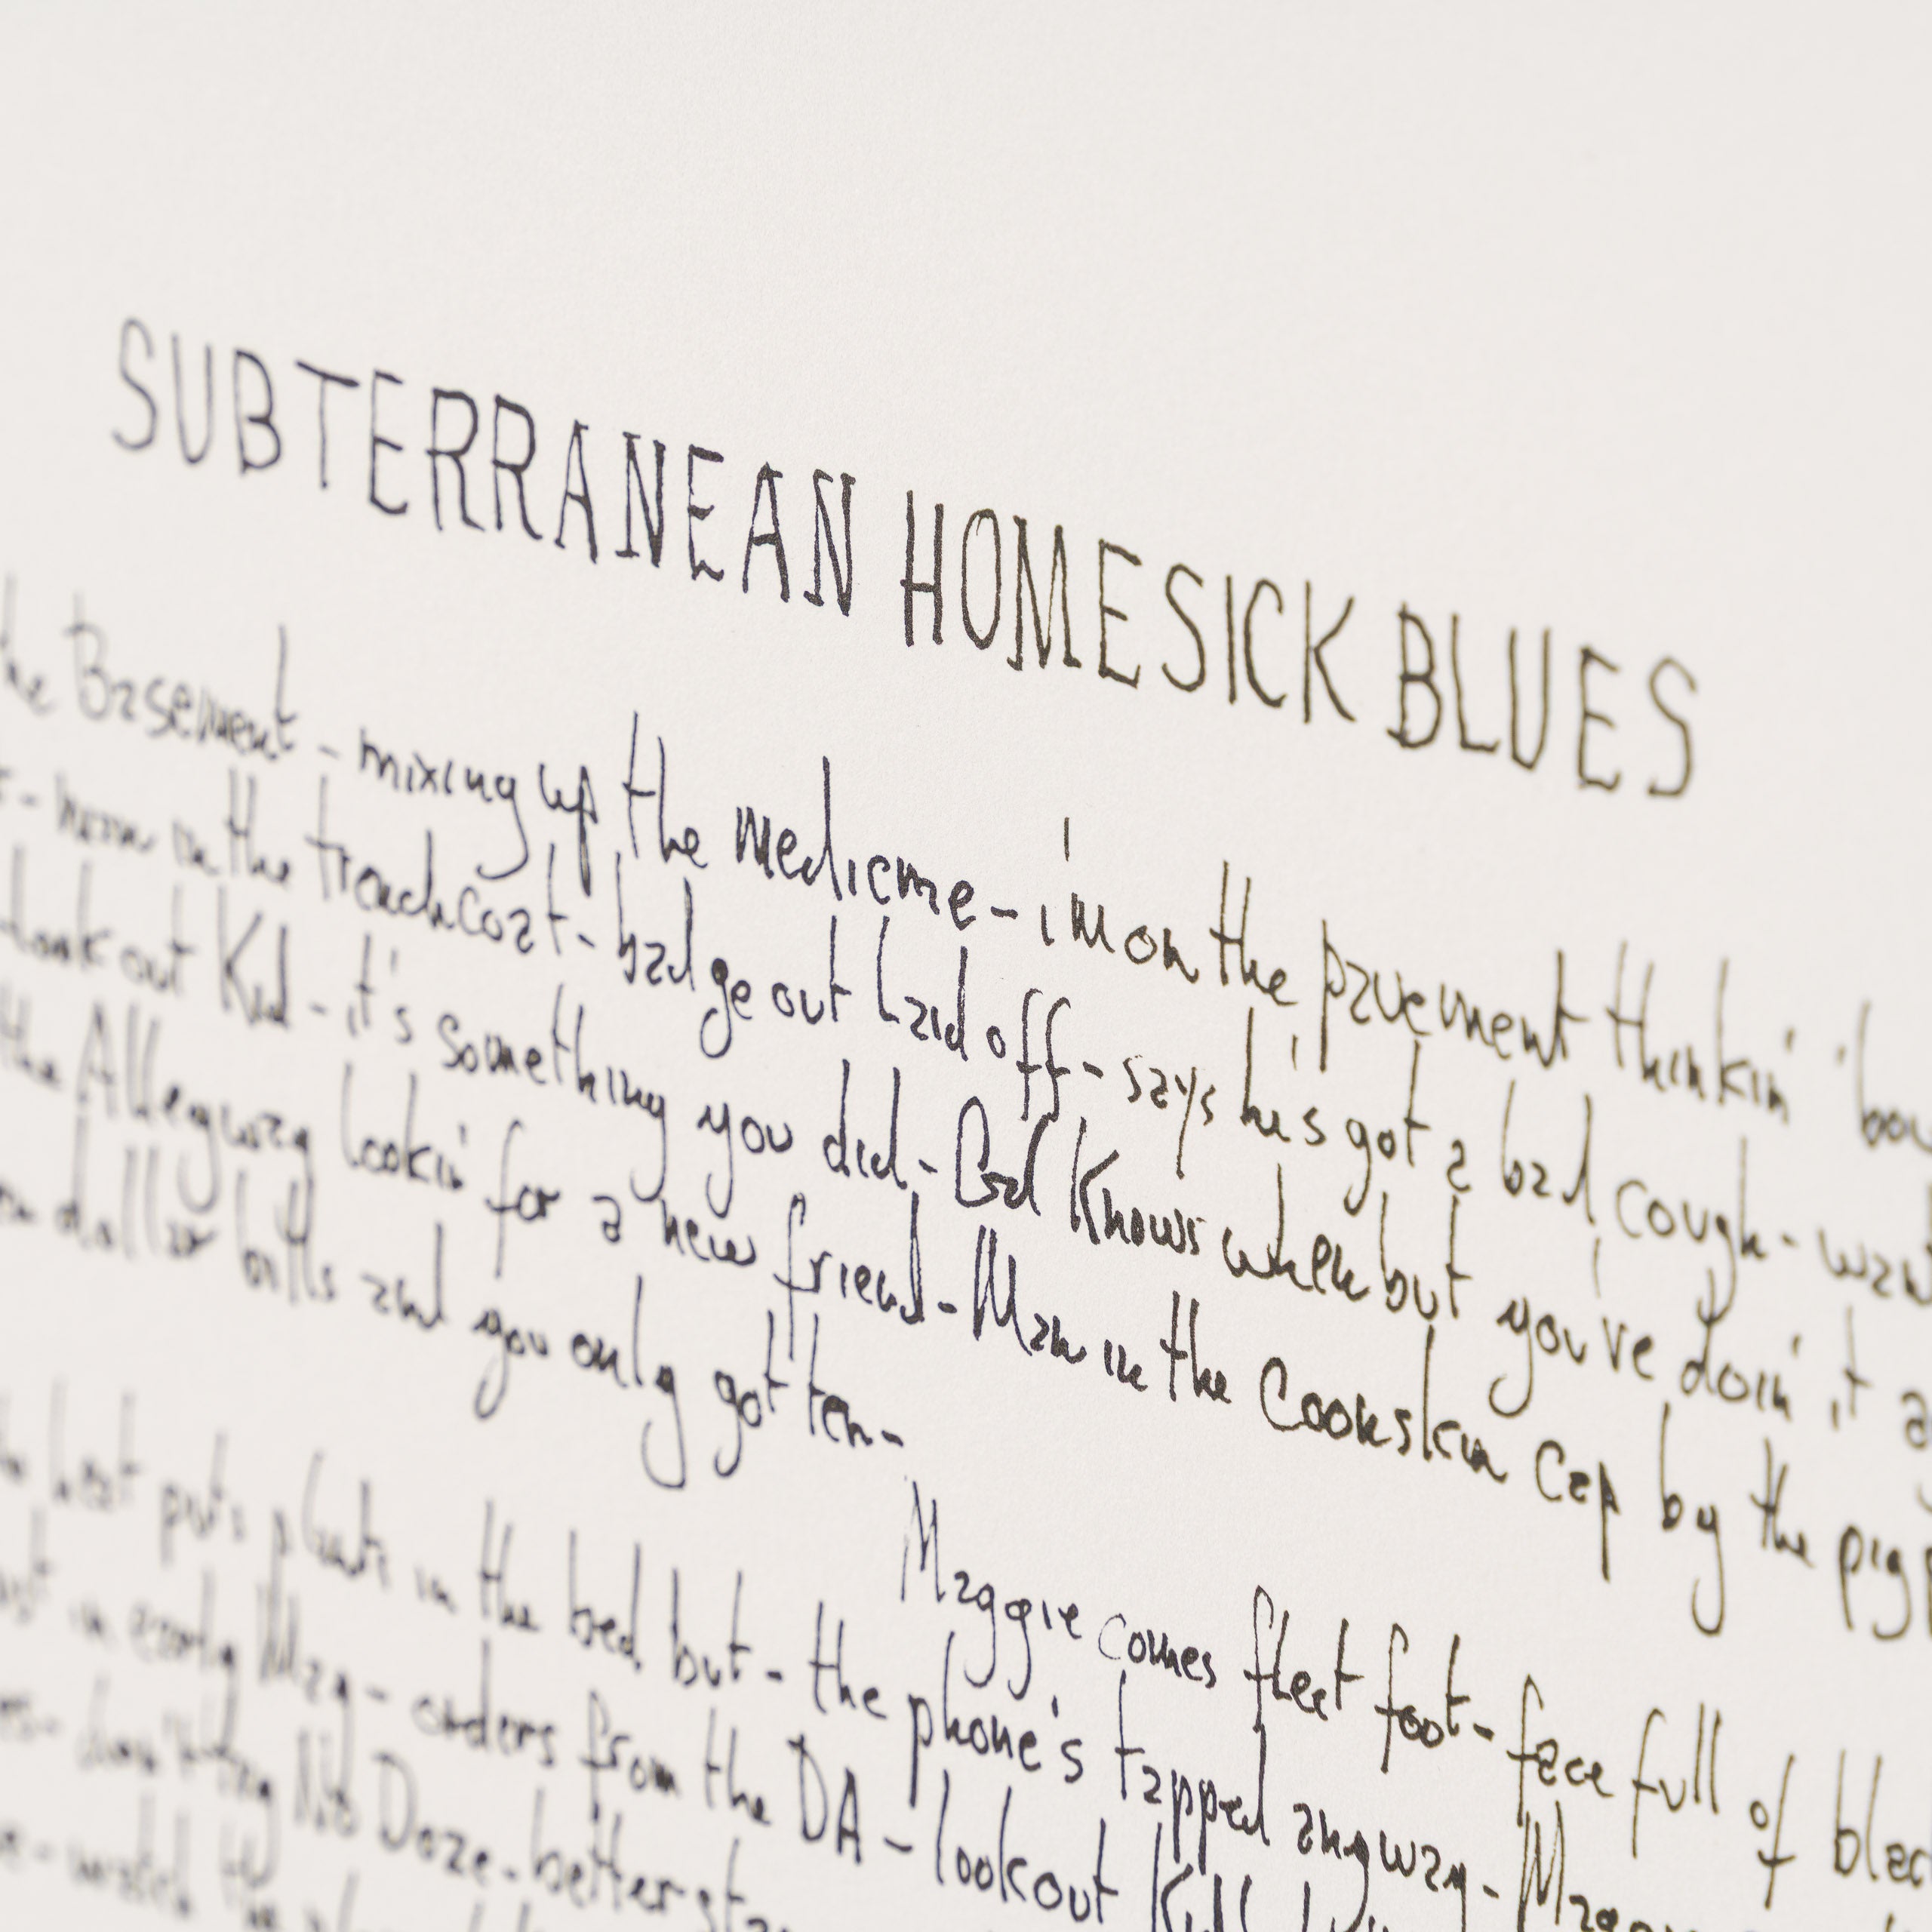 SUBTERRANEAN HOMESICK BLUES
the Basement - mixing up the medicine - i'm on the pavement thinkin' 'bou
- man in the trench coat - badge out laid off - says he's got a bad cough - wan
look out Kid - it's something you did - God Knows when but you've doin' it a
the Alleyway lookin' for a new friend - Man in the Coonskin Cap by the pig p
dollar bills and you only got ten -
Maggie comes fleet foot - face full of blac
heat puts plants in the bed but - the phone's tapped anyway - Magg
in early May - orders from the DA - look out Kid
don't try No Doze - better sta
watch the